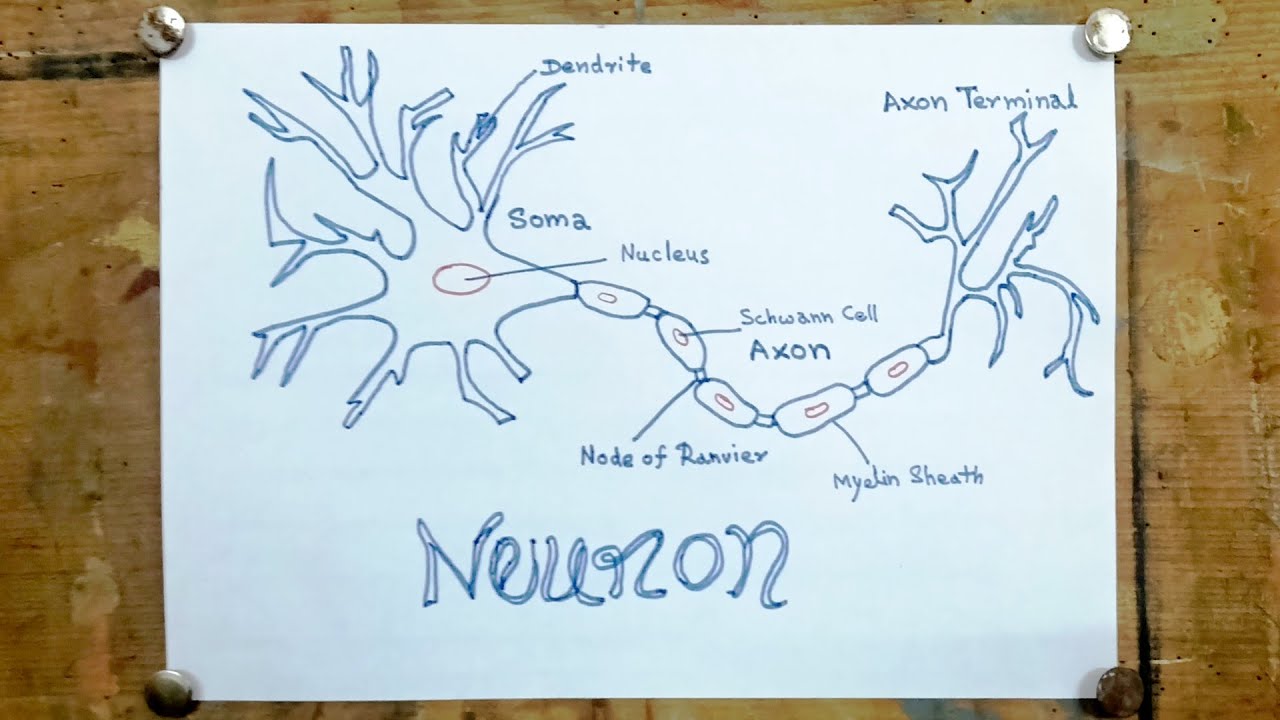 Dendrite
Axon Terminal
Soma
Nucleus
Schwann Cell
Axon
Node of Ranvier
Myelin Sheath
Neuron